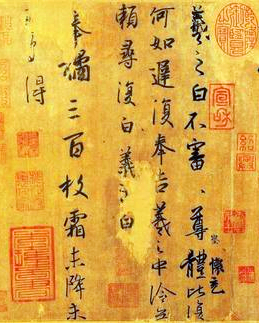 羲之白不審尊體比復
懷充
何如遲復奉告羲之中冷無
賴尋復白羲之白
奉橘三百枚霜未降未
可多得